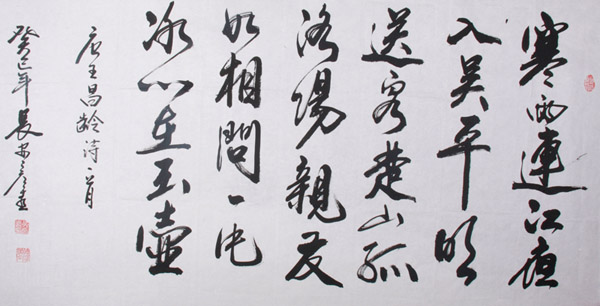 寒雨連江夜
入吴平明
送客楚山孤
洛陽親友
如相問一片
冰心在玉壺
唐王昌龄诗一首
癸巳年長安